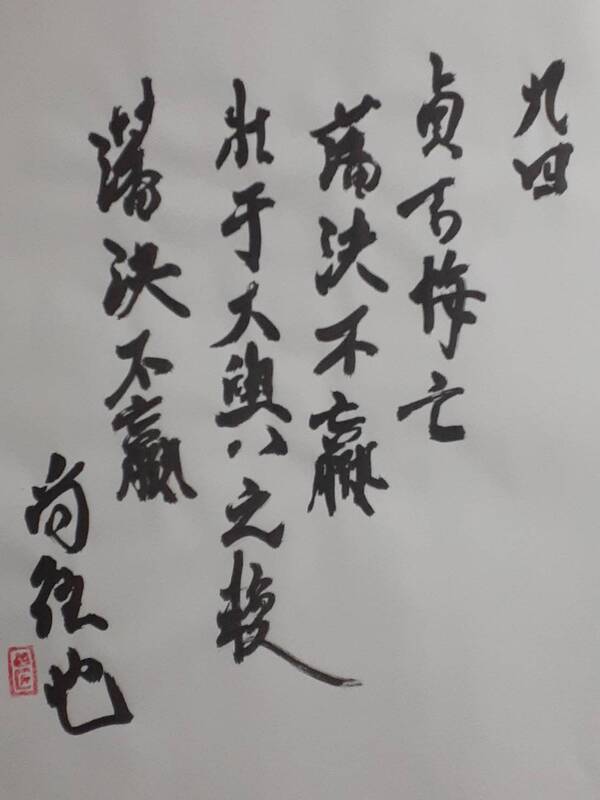 九四
貞吉悔亡
藩決不羸
壯于大輿之輹
藩決不羸
尚往也